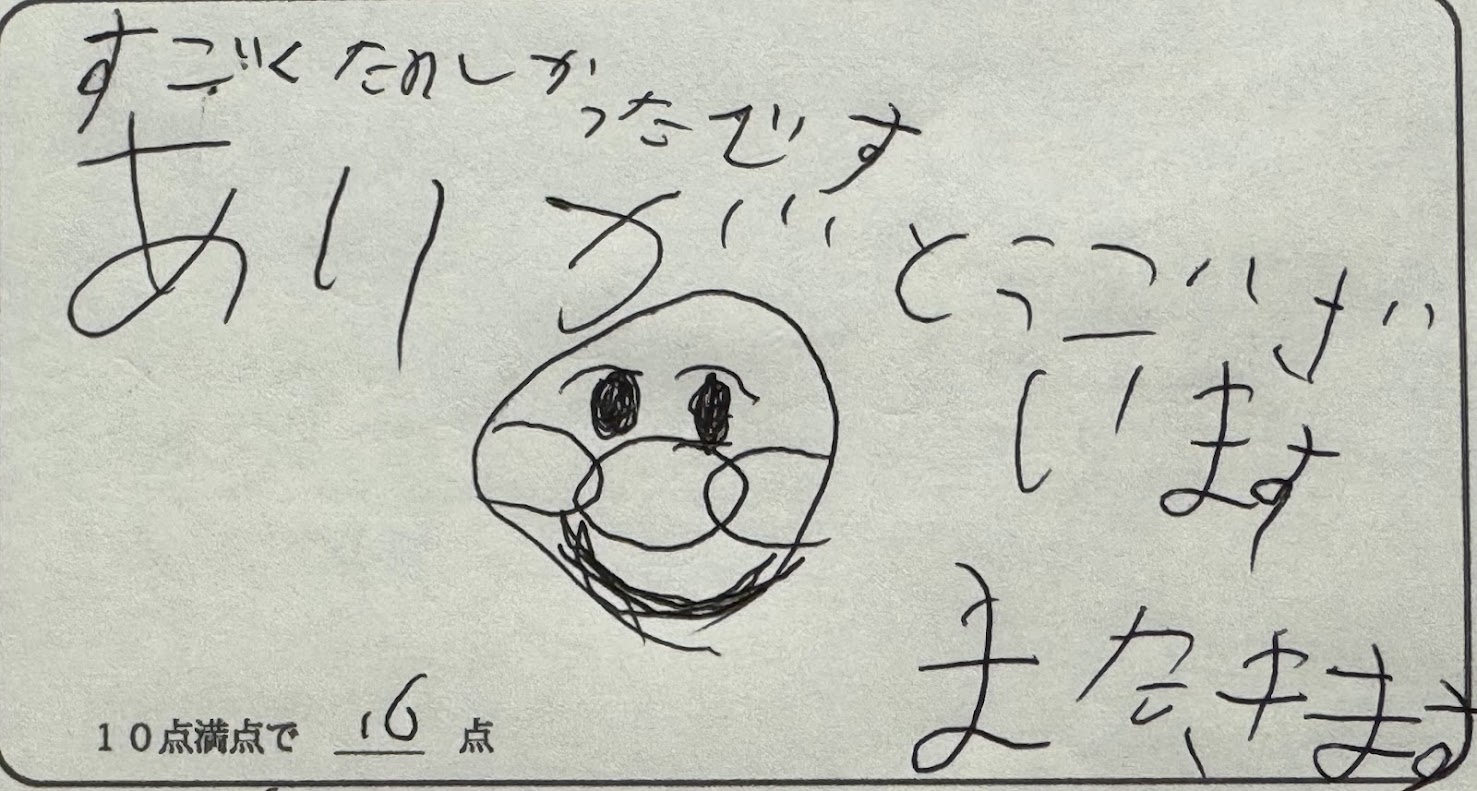 すごくたのしかったです
ありがとうござ
います
またきます
10点満点で 10 点